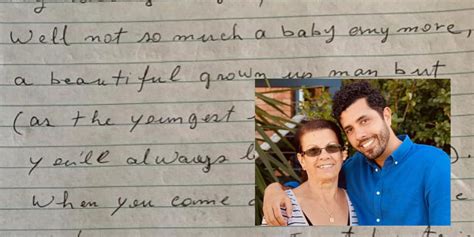 Well not so much a baby any more,
a beautiful grown up man but
(as the youngest
you'll always
When you came